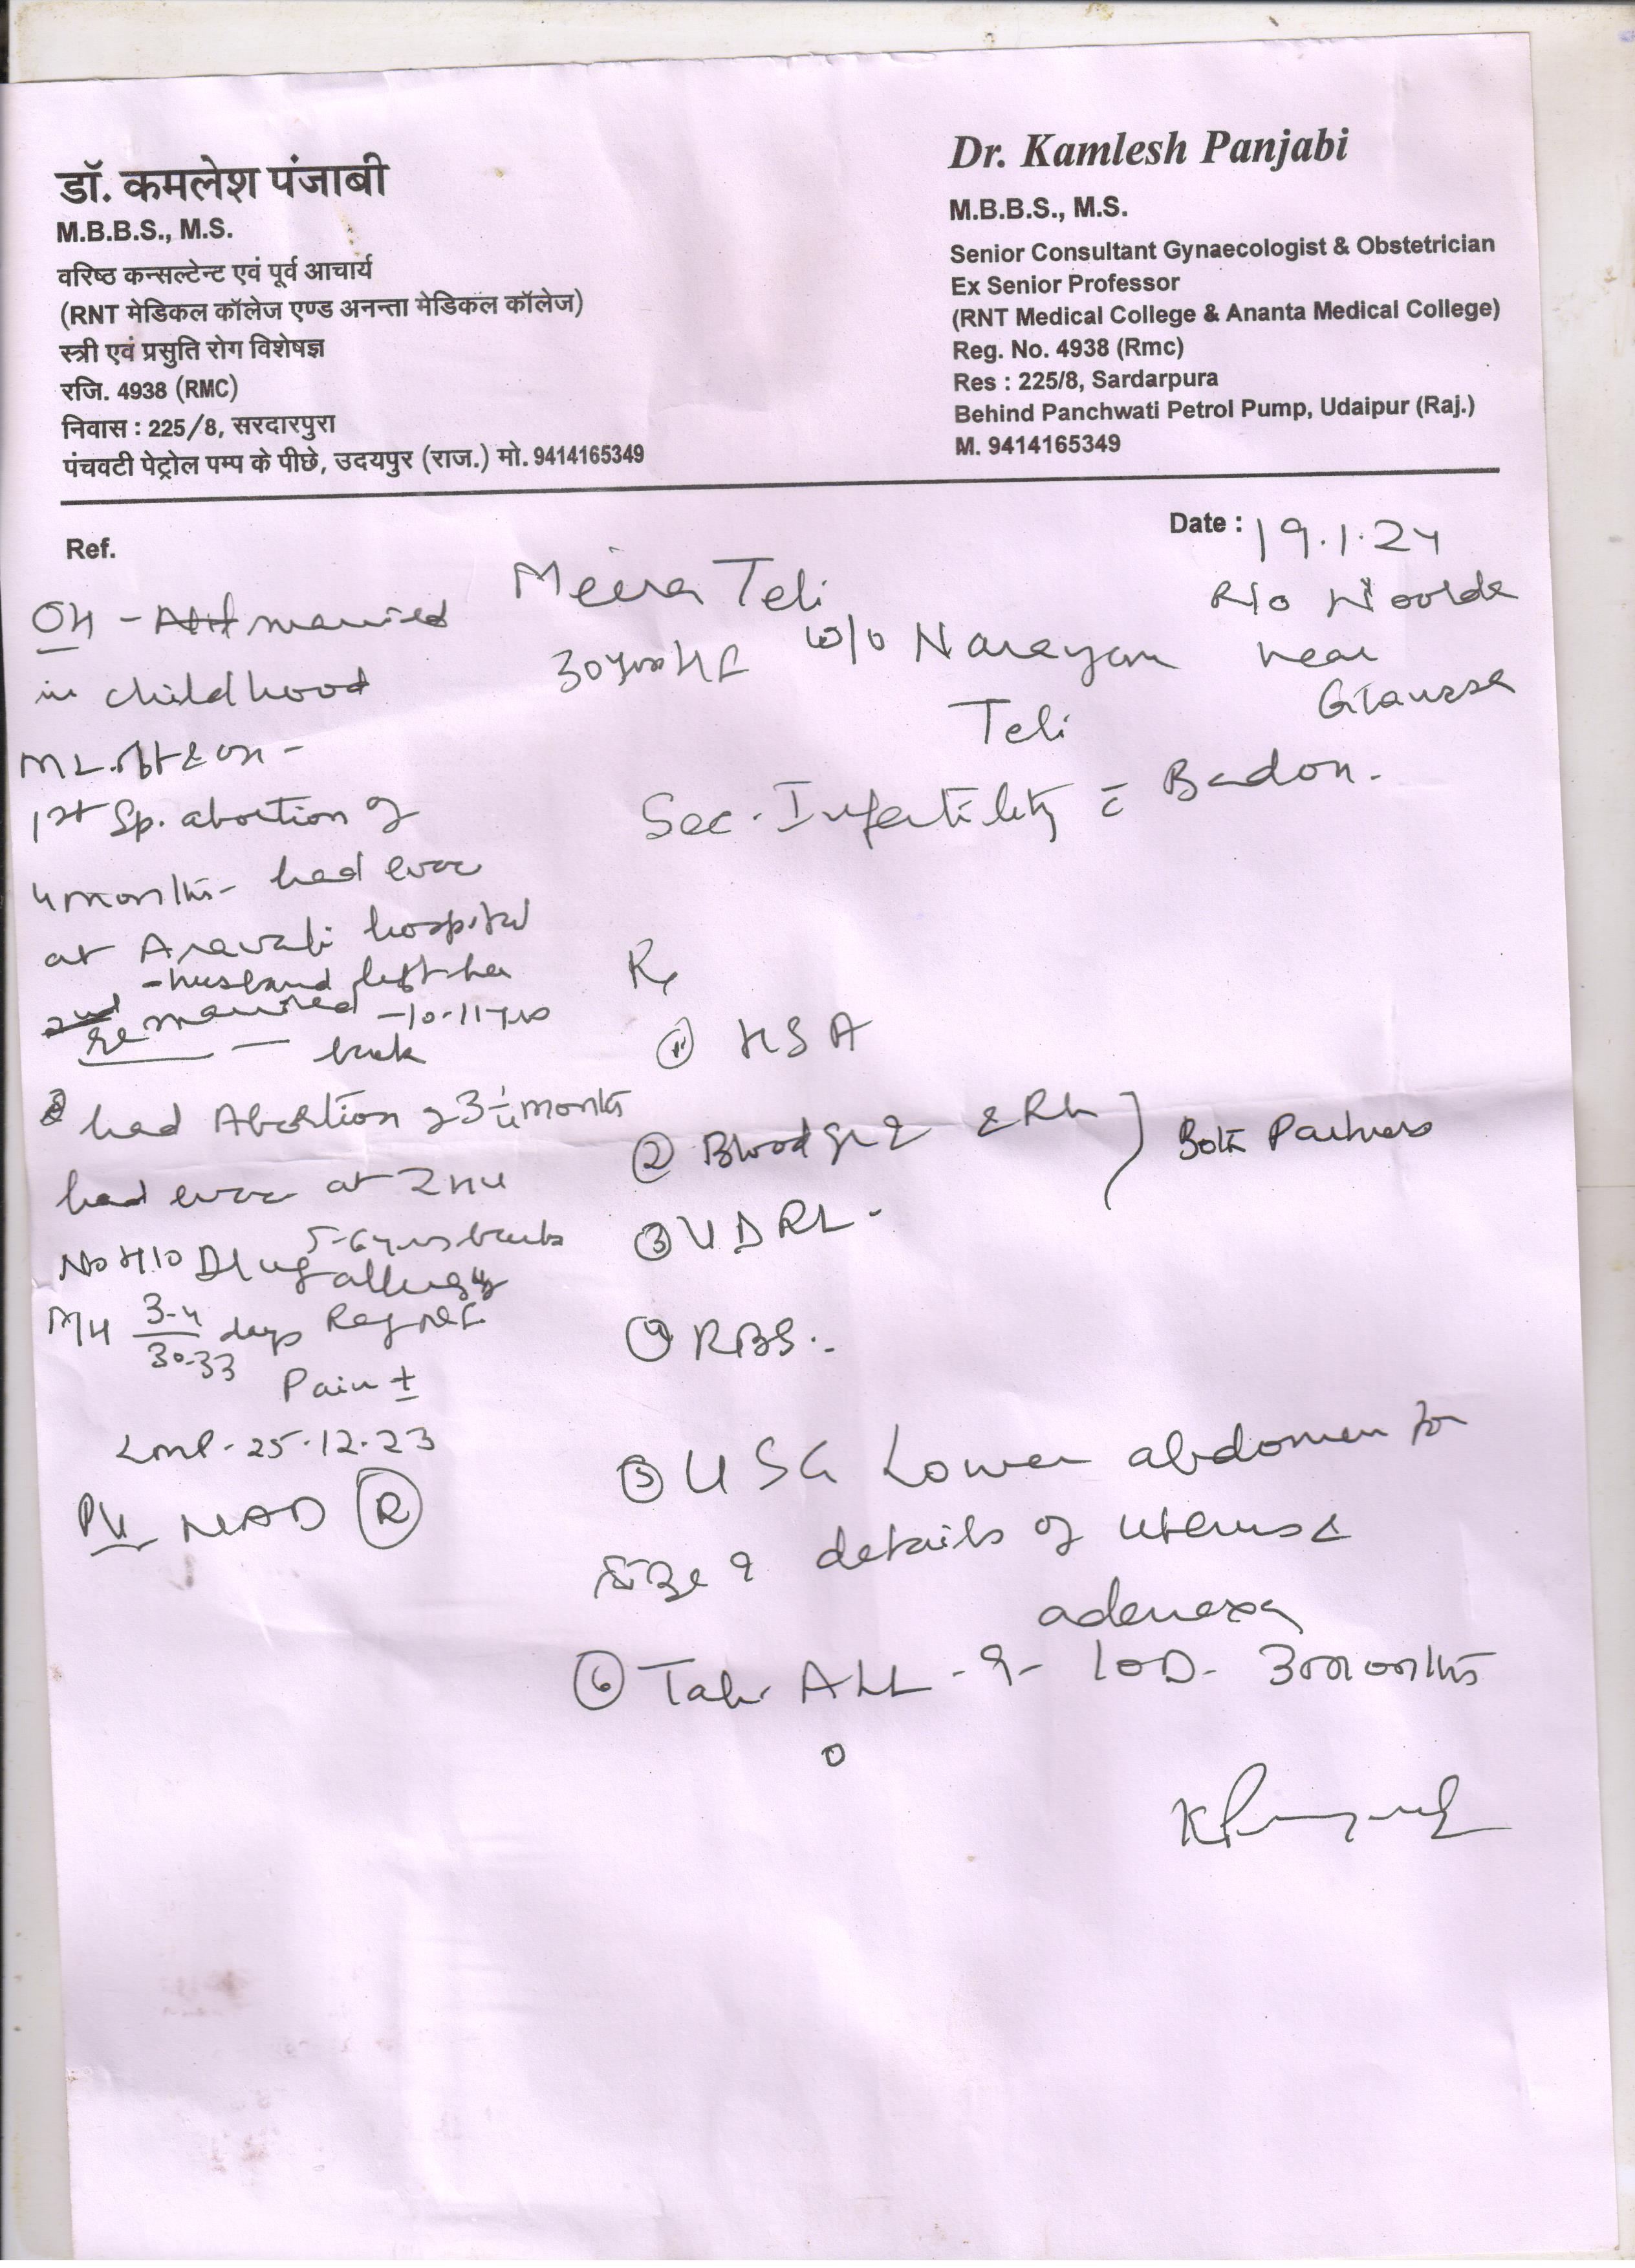 डॉ. कमलेश पंजाबी
M.B.B.S., M.S.
वरिष्ठ कन्सल्टेन्ट एवं पूर्व आचार्य
(RNT मेडिकल कॉलेज एण्ड अनन्ता मेडिकल कॉलेज)
स्त्री एवं प्रसुति रोग विशेषज्ञ
रजि. 4938 (RMC)
निवास : 225/8, सरदारपुरा
पंचवटी पेट्रोल पम्प के पीछे, उदयपुर (राज.) मो. 9414165349
Dr. Kamlesh Panjabi
M.B.B.S., M.S.
Senior Consultant Gynaecologist & Obstetrician
Ex Senior Professor
(RNT Medical College & Ananta Medical College)
Reg. No. 4938 (Rmc)
Res : 225/8, Sardarpura
Behind Panchwati Petrol Pump, Udaipur (Raj.)
M. 9414165349
Ref.
Date : 19.1.24
Meera Teli
30 yrs HF W/o Narayan
Teli
R/o
near
Sec. Infertility c̄
OH - married
in childhood
1st Sp. abortion of
4 months - had evac
at Aravali hospital
- husband left her
Remarried - 10-11 yrs
back
had Abortion of 3-4 months
had evac at
5-6 yrs back
No H/O Drug allergy
M/H 3-4/30-33 days Reg
Pain ±
LMP - 25.12.23
P/V NAD (R)
Rx
① HSA
② Blood gr & Rh } Both Partners
③ VDRL -
④ RBS.
⑤ USG Lower abdomen for
size & details of uterus &
adenexa
⑥ Tab. ALL-9- 1OD- 3 months